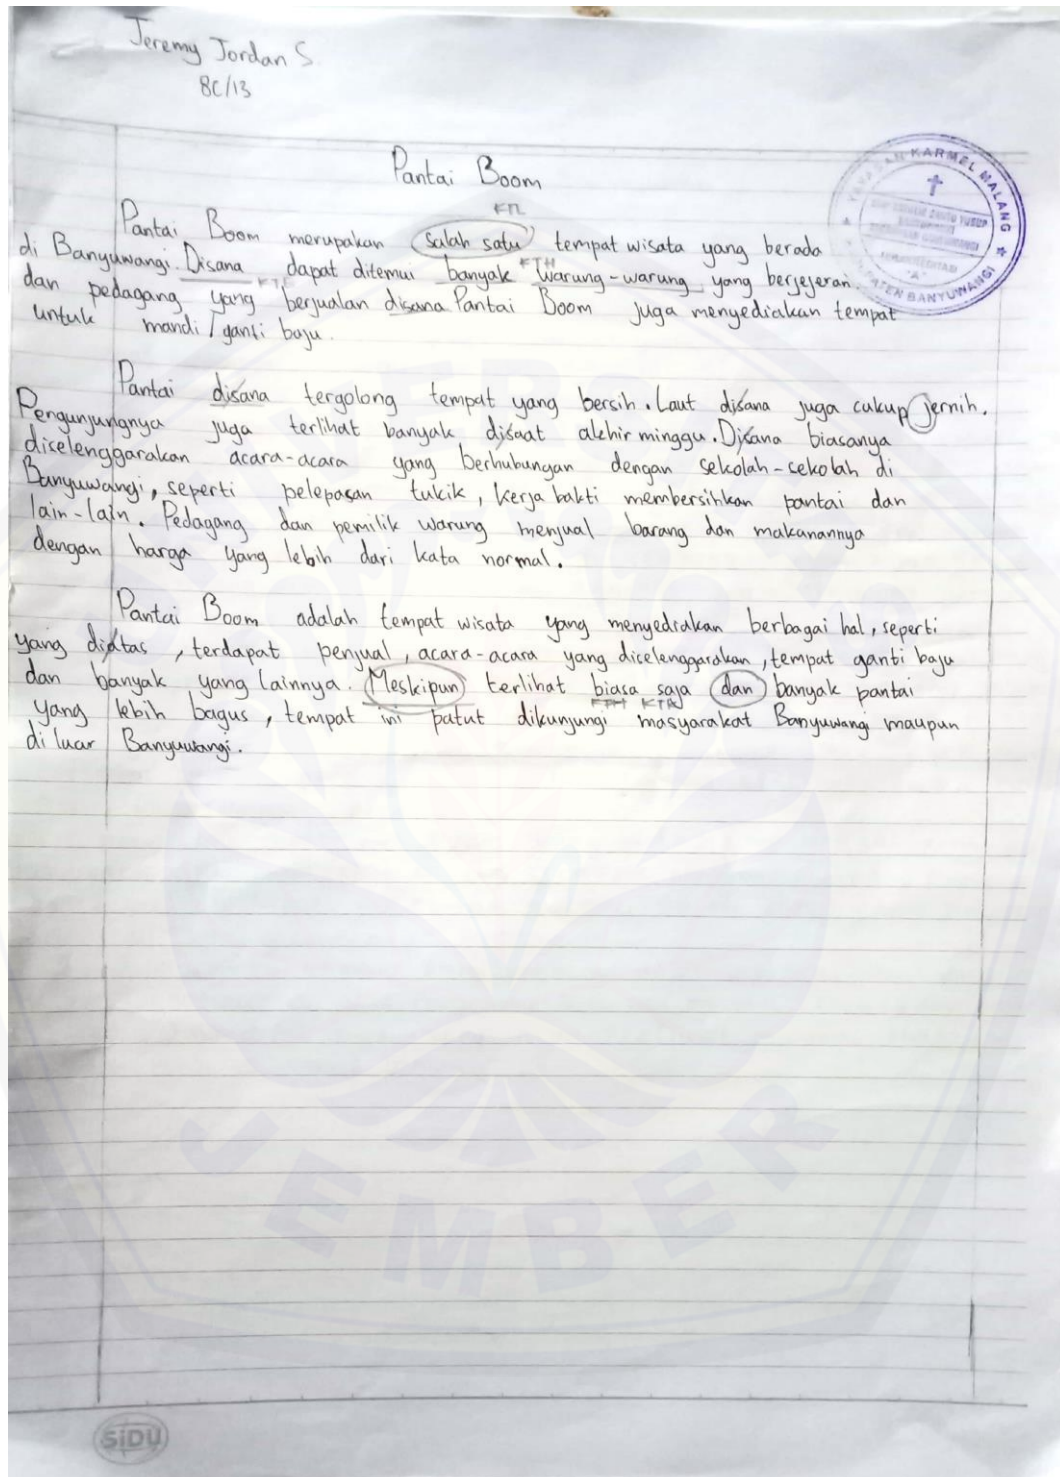 Jeremy Jordan S.
8C/13
YAYASAN KARMEL MALANG
BANYUWANGI
Pantai Boom
KTL
Pantai Boom merupakan salah satu tempat wisata yang berada
di Banyuwangi. Disana dapat ditemui banyak warung-warung yang berjejeran.
KTH
dan pedagang yang berjualan disana Pantai Boom juga menyediakan tempat
untuk mandi / ganti baju.
Pantai disana tergolong tempat yang bersih. Laut disana juga cukup jernih.
Pengunjungnya juga terlihat banyak disaat akhir minggu. Disana biasanya
diselenggarakan acara-acara yang berhubungan dengan sekolah-sekolah di
Banyuwangi, seperti pelepasan tukik, kerja bakti membersihkan pantai dan
lain-lain. Pedagang dan pemilik warung menjual barang dan makanannya
dengan harga yang lebih dari kata normal.
Pantai Boom adalah tempat wisata yang menyediakan berbagai hal, seperti
yang diatas, terdapat penjual, acara-acara yang diselenggarakan, tempat ganti baju
dan banyak yang lainnya. Meskipun terlihat biasa saja dan banyak pantai
yang lebih bagus, tempat ini patut dikunjungi masyarakat Banyuwangi maupun
di luar Banyuwangi.
JEMBER
SIDU